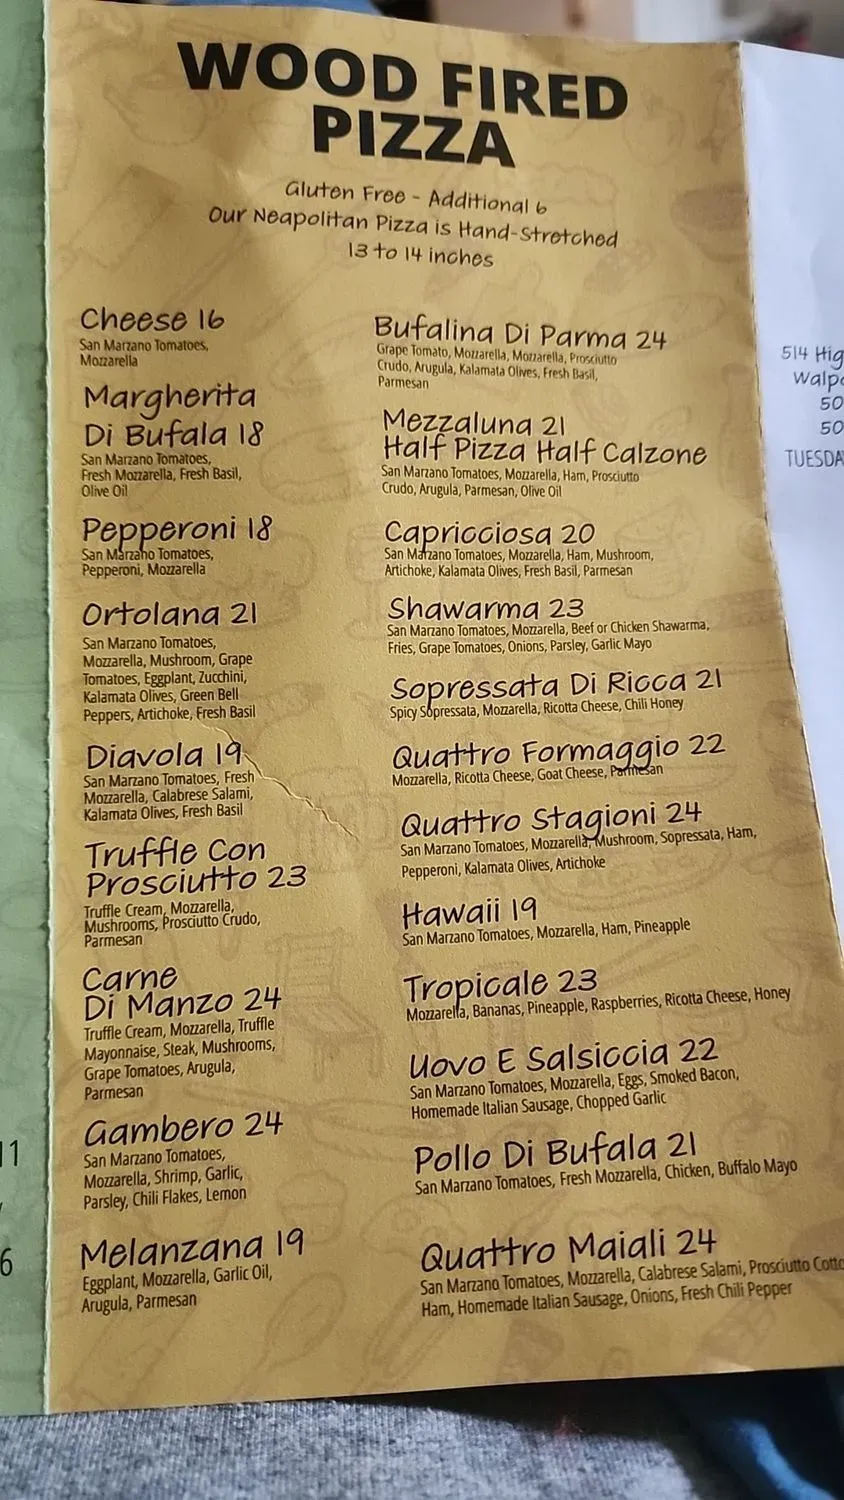 WOOD FIRED
PIZZA
Gluten Free - Additional 6
Our Neapolitan Pizza is Hand-Stretched
13 to 14 inches
Cheese 16
San Marzano Tomatoes,
Mozzarella
Margherita
Di Bufala 18
San Marzano Tomatoes,
Fresh Mozzarella, Fresh Basil,
Olive Oil
Pepperoni 18
San Marzano Tomatoes,
Pepperoni, Mozzarella
Ortolana 21
San Marzano Tomatoes,
Mozzarella, Mushroom, Grape
Tomatoes, Eggplant, Zucchini,
Kalamata Olives, Green Bell
Peppers, Artichoke, Fresh Basil
Diavola 19
San Marzano Tomatoes, Fresh
Mozzarella, Calabrese Salami,
Kalamata Olives, Fresh Basil
Truffle Con
Prosciutto 23
Truffle Cream, Mozzarella,
Mushrooms, Prosciutto Crudo,
Parmesan
Carne
Di Manzo 24
Truffle Cream, Mozzarella, Truffle
Mayonnaise, Steak, Mushrooms,
Grape Tomatoes, Arugula,
Parmesan
Gambero 24
San Marzano Tomatoes,
Mozzarella, Shrimp, Garlic,
Parsley, Chili Flakes, Lemon
Melanzana 19
Eggplant, Mozzarella, Garlic Oil,
Arugula, Parmesan
Bufalina Di Parma 24
Grape Tomato, Mozzarella, Mozzarella, Prosciutto
Crudo, Arugula, Kalamata Olives, Fresh Basil,
Parmesan
Mezzaluna 21
Half Pizza Half Calzone
San Marzano Tomatoes, Mozzarella, Ham, Prosciutto
Crudo, Arugula, Parmesan, Olive Oil
Capricciosa 20
San Marzano Tomatoes, Mozzarella, Ham, Mushroom,
Artichoke, Kalamata Olives, Fresh Basil, Parmesan
Shawarma 23
San Marzano Tomatoes, Mozzarella, Beef or Chicken Shawarma,
Fries, Grape Tomatoes, Onions, Parsley, Garlic Mayo
Sopressata Di Ricca 21
Spicy Sopressata, Mozzarella, Ricotta Cheese, Chili Honey
Quattro Formaggio 22
Mozzarella, Ricotta Cheese, Goat Cheese, Parmesan
Quattro Stagioni 24
San Marzano Tomatoes, Mozzarella, Mushroom, Sopressata, Ham,
Pepperoni, Kalamata Olives, Artichoke
Hawaii 19
San Marzano Tomatoes, Mozzarella, Ham, Pineapple
Tropicale 23
Mozzarella, Bananas, Pineapple, Raspberries, Ricotta Cheese, Honey
Uovo E Salsiccia 22
San Marzano Tomatoes, Mozzarella, Eggs, Smoked Bacon,
Homemade Italian Sausage, Chopped Garlic
Pollo Di Bufala 21
San Marzano Tomatoes, Fresh Mozzarella, Chicken, Buffalo Mayo
Quattro Maiali 24
San Marzano Tomatoes, Mozzarella, Calabrese Salami, Prosciutto Cotto
Ham, Homemade Italian Sausage, Onions, Fresh Chili Pepper
514 Hig
Walp
50
50
TUESDA
11
6